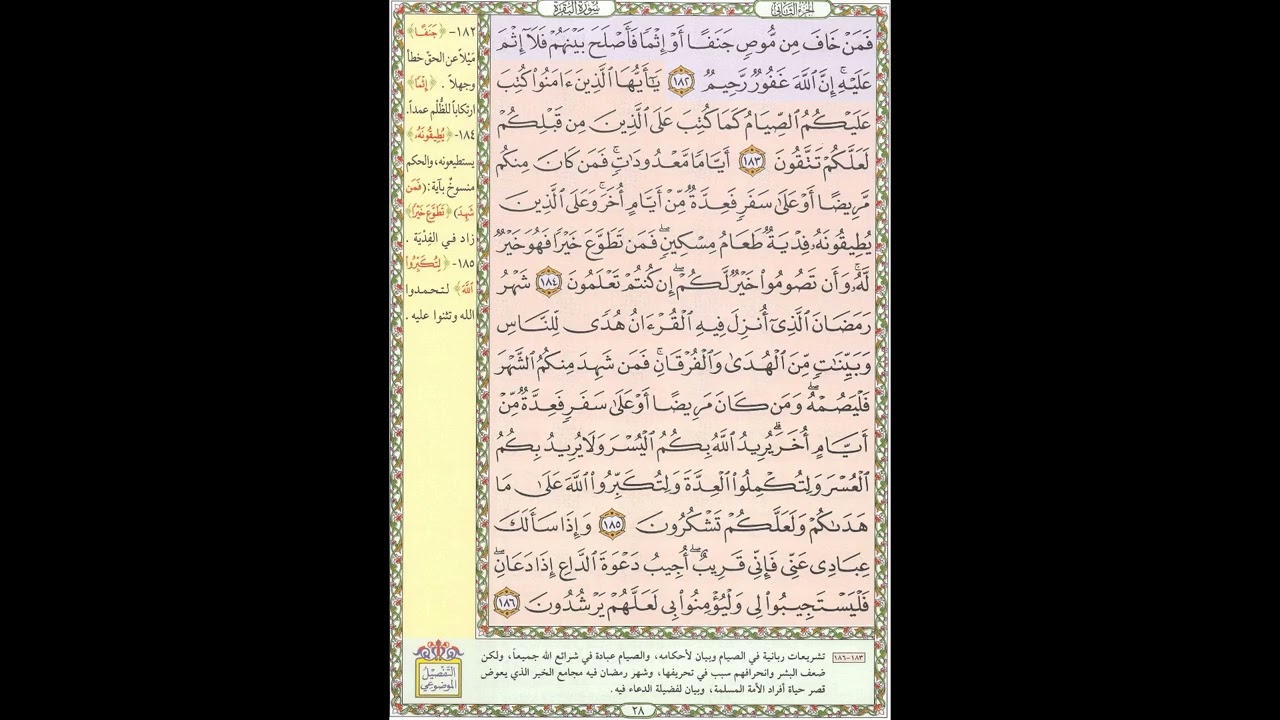 الجزء الثاني
سورة البقرة
فَمَنْ خَافَ مِن مُّوصٍ جَنَفًا أَوْ إِثْمًا فَأَصْلَحَ بَيْنَهُمْ فَلَآ إِثْمَ
عَلَيْهِ ۚ إِنَّ ٱللَّهَ غَفُورٌ رَّحِيمٌ ١٨٢ يَـٰٓأَيُّهَا ٱلَّذِينَ ءَامَنُوا۟ كُتِبَ
عَلَيْكُمُ ٱلصِّيَامُ كَمَا كُتِبَ عَلَى ٱلَّذِينَ مِن قَبْلِكُمْ
لَعَلَّكُمْ تَتَّقُونَ ١٨٣ أَيَّامًا مَّعْدُودَٰتٍ ۚ فَمَن كَانَ مِنكُم
مَّرِيضًا أَوْ عَلَىٰ سَفَرٍ فَعِدَّةٌ مِّنْ أَيَّامٍ أُخَرَ ۚ وَعَلَى ٱلَّذِينَ
يُطِيقُونَهُۥ فِدْيَةٌ طَعَامُ مِسْكِينٍ ۖ فَمَن تَطَوَّعَ خَيْرًا فَهُوَ خَيْرٌ
لَّهُۥ ۚ وَأَن تَصُومُوا۟ خَيْرٌ لَّكُمْ ۖ إِن كُنتُمْ تَعْلَمُونَ ١٨٤ شَهْرُ
رَمَضَانَ ٱلَّذِىٓ أُنزِلَ فِيهِ ٱلْقُرْءَانُ هُدًى لِّلنَّاسِ
وَبَيِّنَـٰتٍ مِّنَ ٱلْهُدَىٰ وَٱلْفُرْقَانِ ۚ فَمَن شَهِدَ مِنكُمُ ٱلشَّهْرَ
فَلْيَصُمْهُ ۖ وَمَن كَانَ مَرِيضًا أَوْ عَلَىٰ سَفَرٍ فَعِدَّةٌ مِّنْ
أَيَّامٍ أُخَرَ ۗ يُرِيدُ ٱللَّهُ بِكُمُ ٱلْيُسْرَ وَلَا يُرِيدُ بِكُمُ
ٱلْعُسْرَ وَلِتُكْمِلُوا۟ ٱلْعِدَّةَ وَلِتُكَبِّرُوا۟ ٱللَّهَ عَلَىٰ مَا
هَدَىٰكُمْ وَلَعَلَّكُمْ تَشْكُرُونَ ١٨٥ وَإِذَا سَأَلَكَ
عِبَادِى عَنِّى فَإِنِّى قَرِيبٌ ۖ أُجِيبُ دَعْوَةَ ٱلدَّاعِ إِذَا دَعَانِ ۖ
فَلْيَسْتَجِيبُوا۟ لِى وَلْيُؤْمِنُوا۟ بِى لَعَلَّهُمْ يَرْشُدُونَ ١٨٦
١٨٢- ﴿جَنَفًا﴾
مَيْلاً عن الحقّ خطأ
وجهلاً . ﴿إِثْمًا﴾
ارتكاباً للظُّلْم عمداً.
١٨٤- ﴿يُطِيقُونَهُۥ﴾
يستطيعونه، والحكم
منسوخٌ بآية: ﴿فَمَن
شَهِدَ﴾ ﴿تَطَوَّعَ خَيْرًا﴾
زاد في الفِدْيَة .
١٨٥- ﴿لِتُكَبِّرُوا۟
ٱللَّهَ﴾ لتحمدوا
الله وتثنوا عليه .
١٨٣-١٨٦ تشريعات ربانية في الصيام وبيان لأحكامه، والصيام عبادة في شرائع الله جميعاً، ولكن
ضعف البشر وانحرافهم سبب في تحريفها، وشهر رمضان فيه مجامع الخير الذي يعوض
قصر حياة أفراد الأمة المسلمة، وبيان لفضيلة الدعاء فيه .
التفصيل
الموضوعي
٢٨